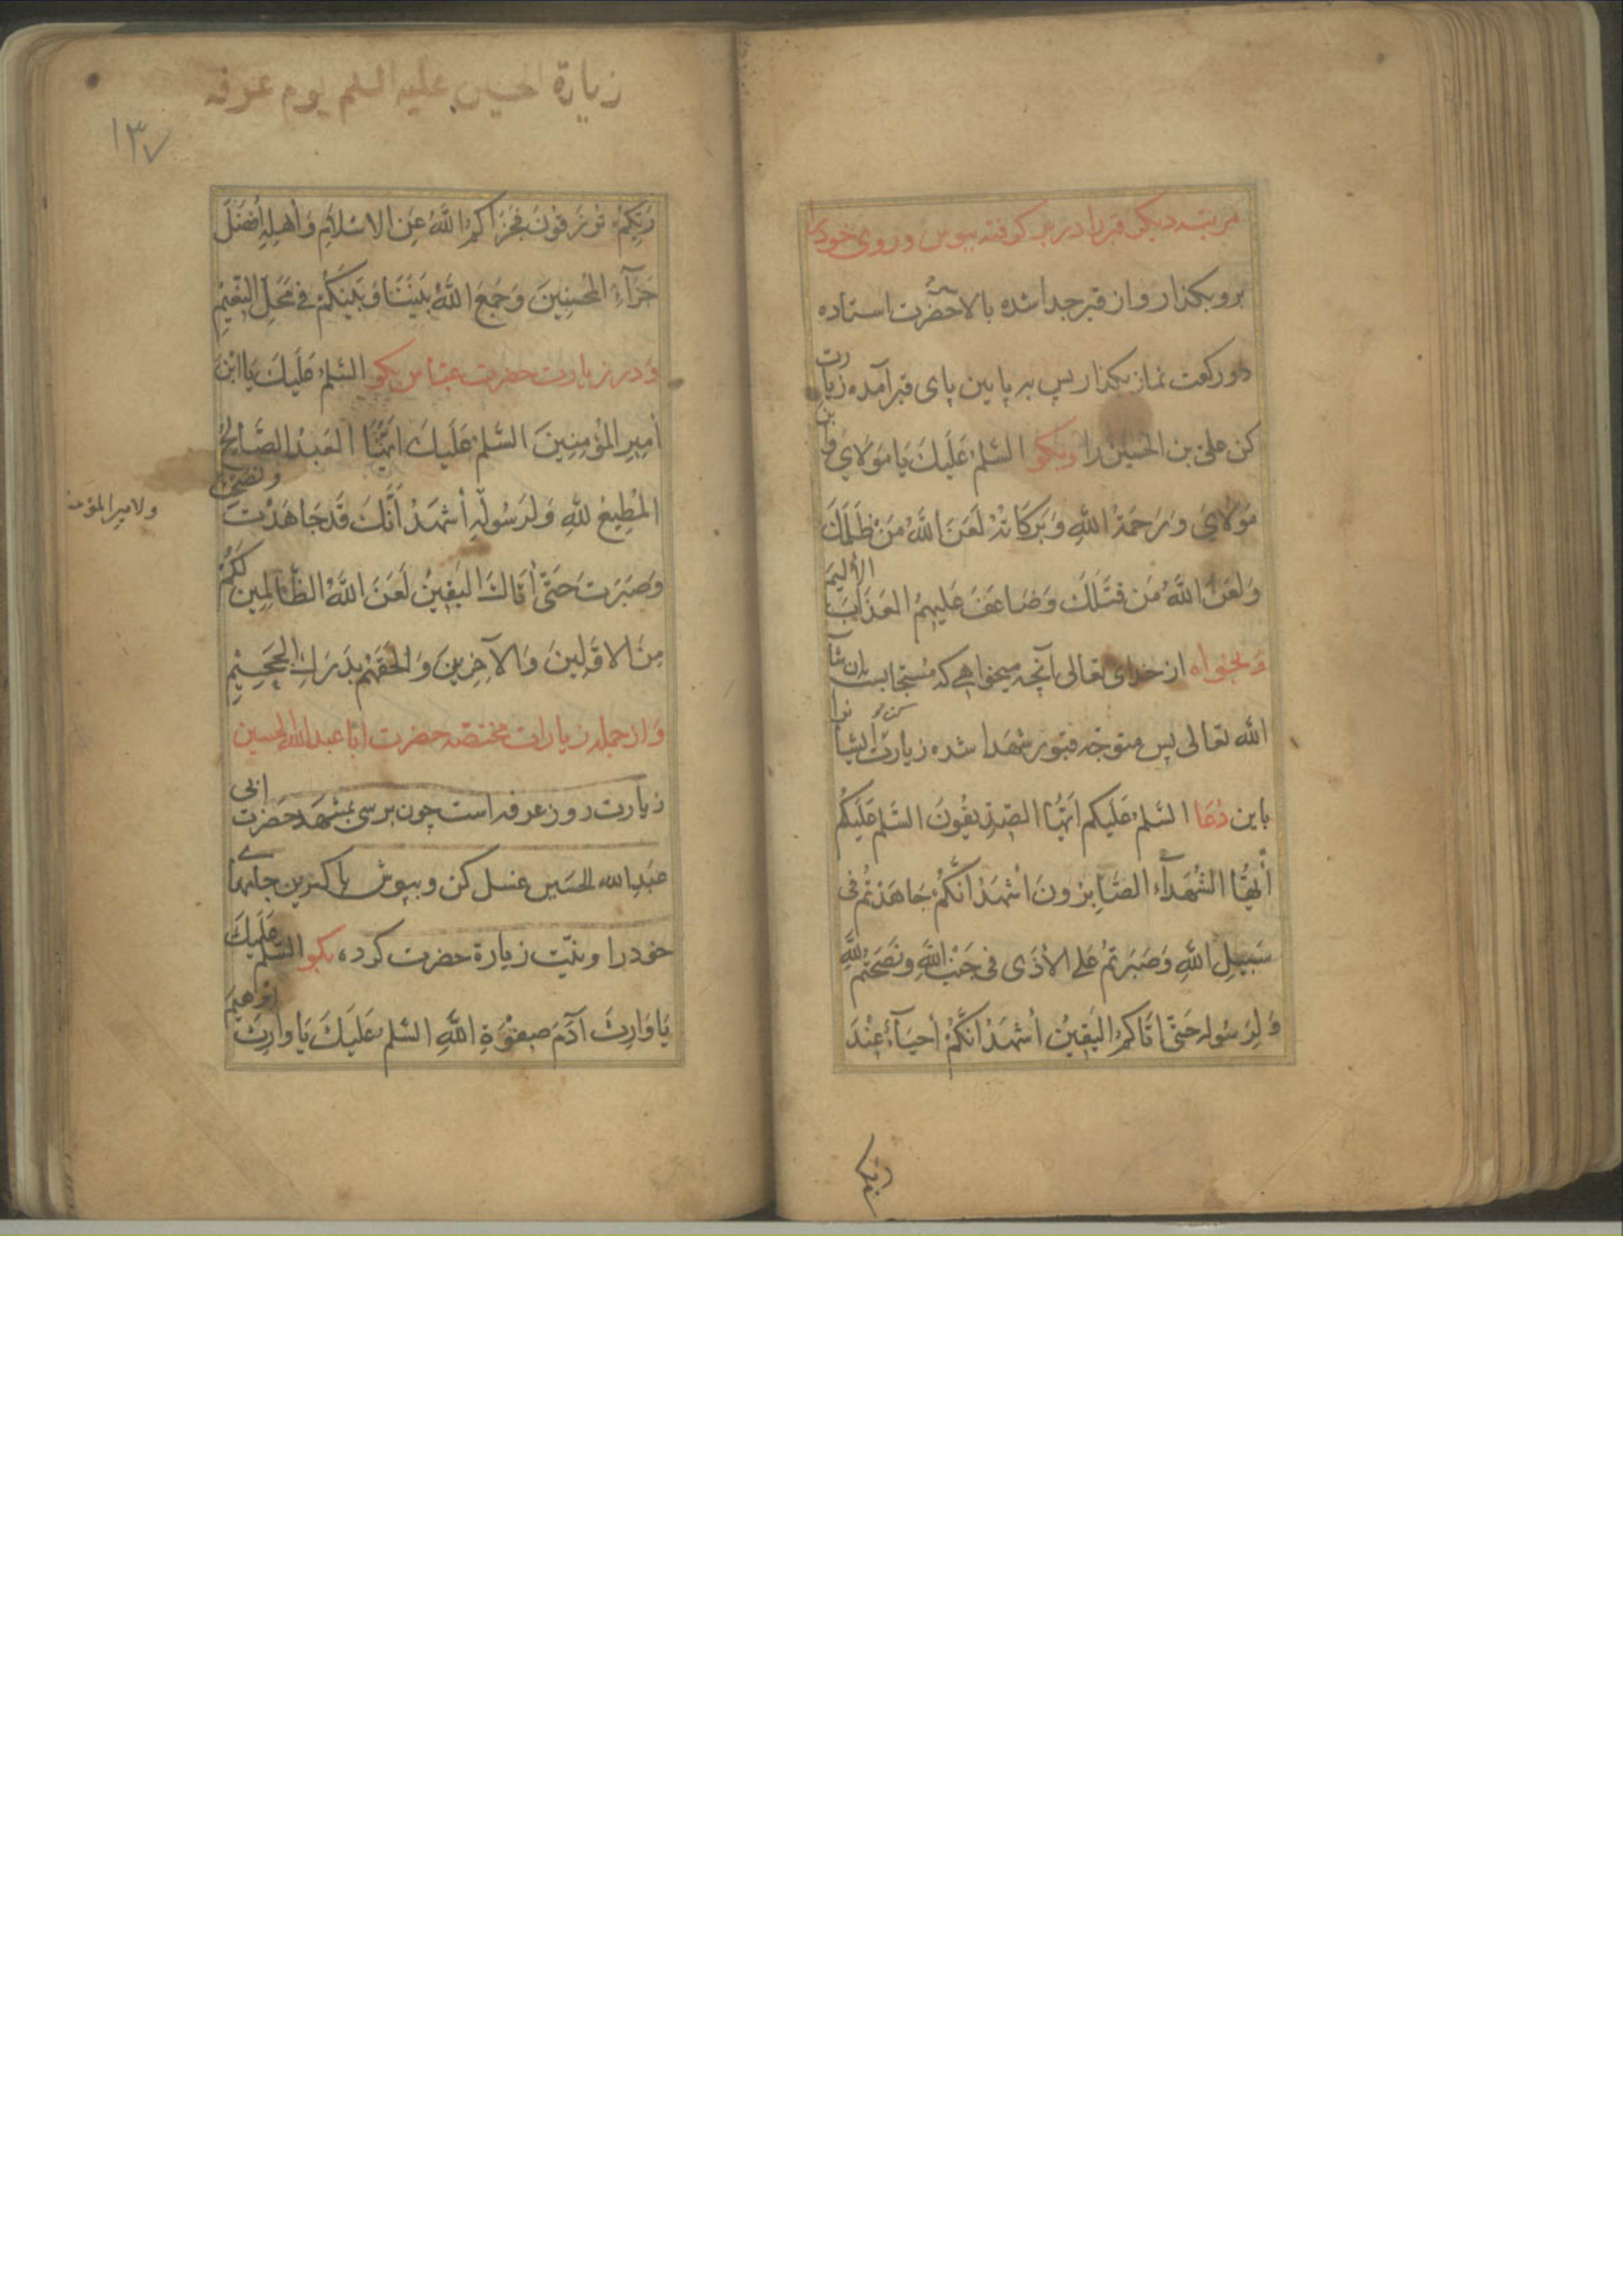 مرتبه دیگر قبر را در بر گرفته ببوس و روی خود را
برو بگذار و از قبر جدا شده بالا سر حضرت استاده
دو رکعت نماز بگذار پس به پایین پای قبر آمده زیارت
کن علیّ بن الحسین را وبگو السَّلمُ عَلَیكَ یَا مَولَايَ وابن
مَوْلَايَ وَ رَحْمَةُ اللهِ وَ بَرَكَاتُهُ لَعَنَ اللهُ مَنْ ظَلَمَكَ
وَلَعَنَ اللهُ مَن قَتَلَكَ وَضَاعَفَ عَلَيهِمُ العَذَابَ الأَليمَ
وَ بخواه از خدای تعالی آنچه میخواهی که مستجابست ان شآ
الله تعالی پس متوجّه قبور شهدا شده زیارت ایشانرا کن و
باین دُعَا السَّلمُ عَلَيكُم اَيُّهَا الصِّدِّيقُونَ السَّلمُ عَلَيكُم
أَيُّهَا الشُّهَدآءُ الصَّابِرُونَ أَشْهَدُ أَنَّكُمْ جَاهَدْتُمْ فی
سَبِيلِ اللهِ وَصَبَرتُمْ عَلى الأَذَى فى جَنْبِ اللهِ وَنَصَحْتُمْ لِلّهِ
وَ لِرَسُولِهِ حَتّى اَتَاكُمُ اليَقِينُ أَشْهَدُ اَنَّكُمْ أَحيَآءٌ عِنْدَ
زيارة الحسين عليه السلم يوم عرفه
١٣٧
رَبِّكُمْ تُرْزَقُونَ فَجَزَاكُمُ اللهُ عَنِ الاسْلَامِ وَأَهلِهِ أَفضَلَ
جَزَآءِ المُحْسِنِينَ وَجَمَعَ اللهُ بَيْنَنَا وَ بَيْنَكُمْ فِي مَحَلِّ النَّعِيْمِ
وَ در زیارت حضرت عبّاس بگو السَّلمُ عَلَيكَ يَا ابْنَ
أَمِيرِ المُؤْمِنِينَ السَّلمُ عَلَيكَ اَيُّهَا العَبدُ الصَّالِحُ
المُطِيعُ لِلّهِ وَلِرَسُولِهِ أَشهَدُ أَنَّكَ قَدْ جَاهَدْتَ ونصحت
ولامير المؤمنين
وَصَبَرتَ حَتَّى أَتَاكَ اليَقِينُ لَعَنَ اللهُ الظَّالِمِين لَكُمْ
مِنَ الاَوَّلِينَ وَالآخِرِينَ وَ اَلْحَقَهُمْ بِدَرَكِ الجَحِيْمِ
وَ از جمله زیارات مختصّه حضرت ابا عبد الله الحسین
زیارت روز عرفه است چون برسی بمشهد حضرت ابی
عبد الله الحسین غسل کن و بپوش پاکترین جامهای
خود را و نیّت زیارة حضرت کرده، بگو السَّلمُ عَلَيكَ
يَا وَارِثَ آدَمَ صِفْوَةِ اللهِ السَّلمُ عَلَيكَ يَا وَارِثَ ابراهيمَ